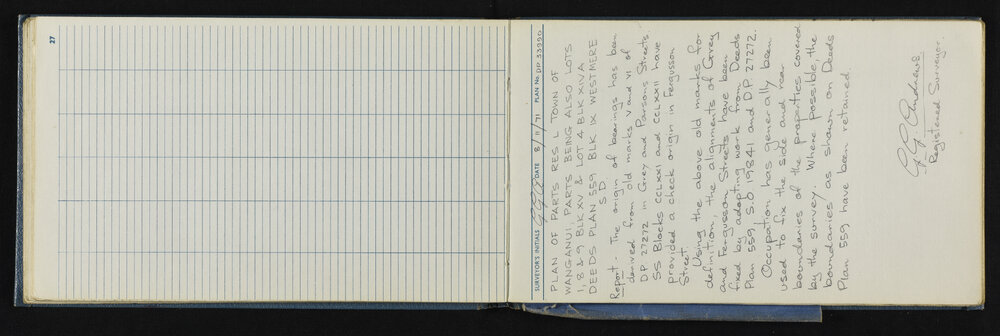 27
SURVEYOR'S INITIALS G.G.A. DATE 8/11/71 PLAN No. DP. 33990
PLAN OF PARTS RES L TOWN OF
WANGANUI, PARTS BEING ALSO LOTS
1, 8 & 9 BLK XV & LOT 4 BLK XIV A
DEEDS PLAN 559 BLK IX WESTMERE
S.D.
Report:- The origin of bearings has been
derived from old marks V and VI of
DP 27272 in Grey and Parsons Streets
SS Blocks CCLXXI and CCLXXII have
provided a check origin in Fergusson
Street.
Using the above old marks for
definition, the alignments of Grey
and Fergusson Streets have been
fixed by adopting work from Deeds
Plan 559, S.O 19841 and D.P 27272.
Occupation has generally been
used to fix the side and rear
boundaries of the properties covered
by the survey. Where possible, the
boundaries as shown on Deeds
Plan 559 have been retained.
G. G. Andrews
Registered Surveyor.